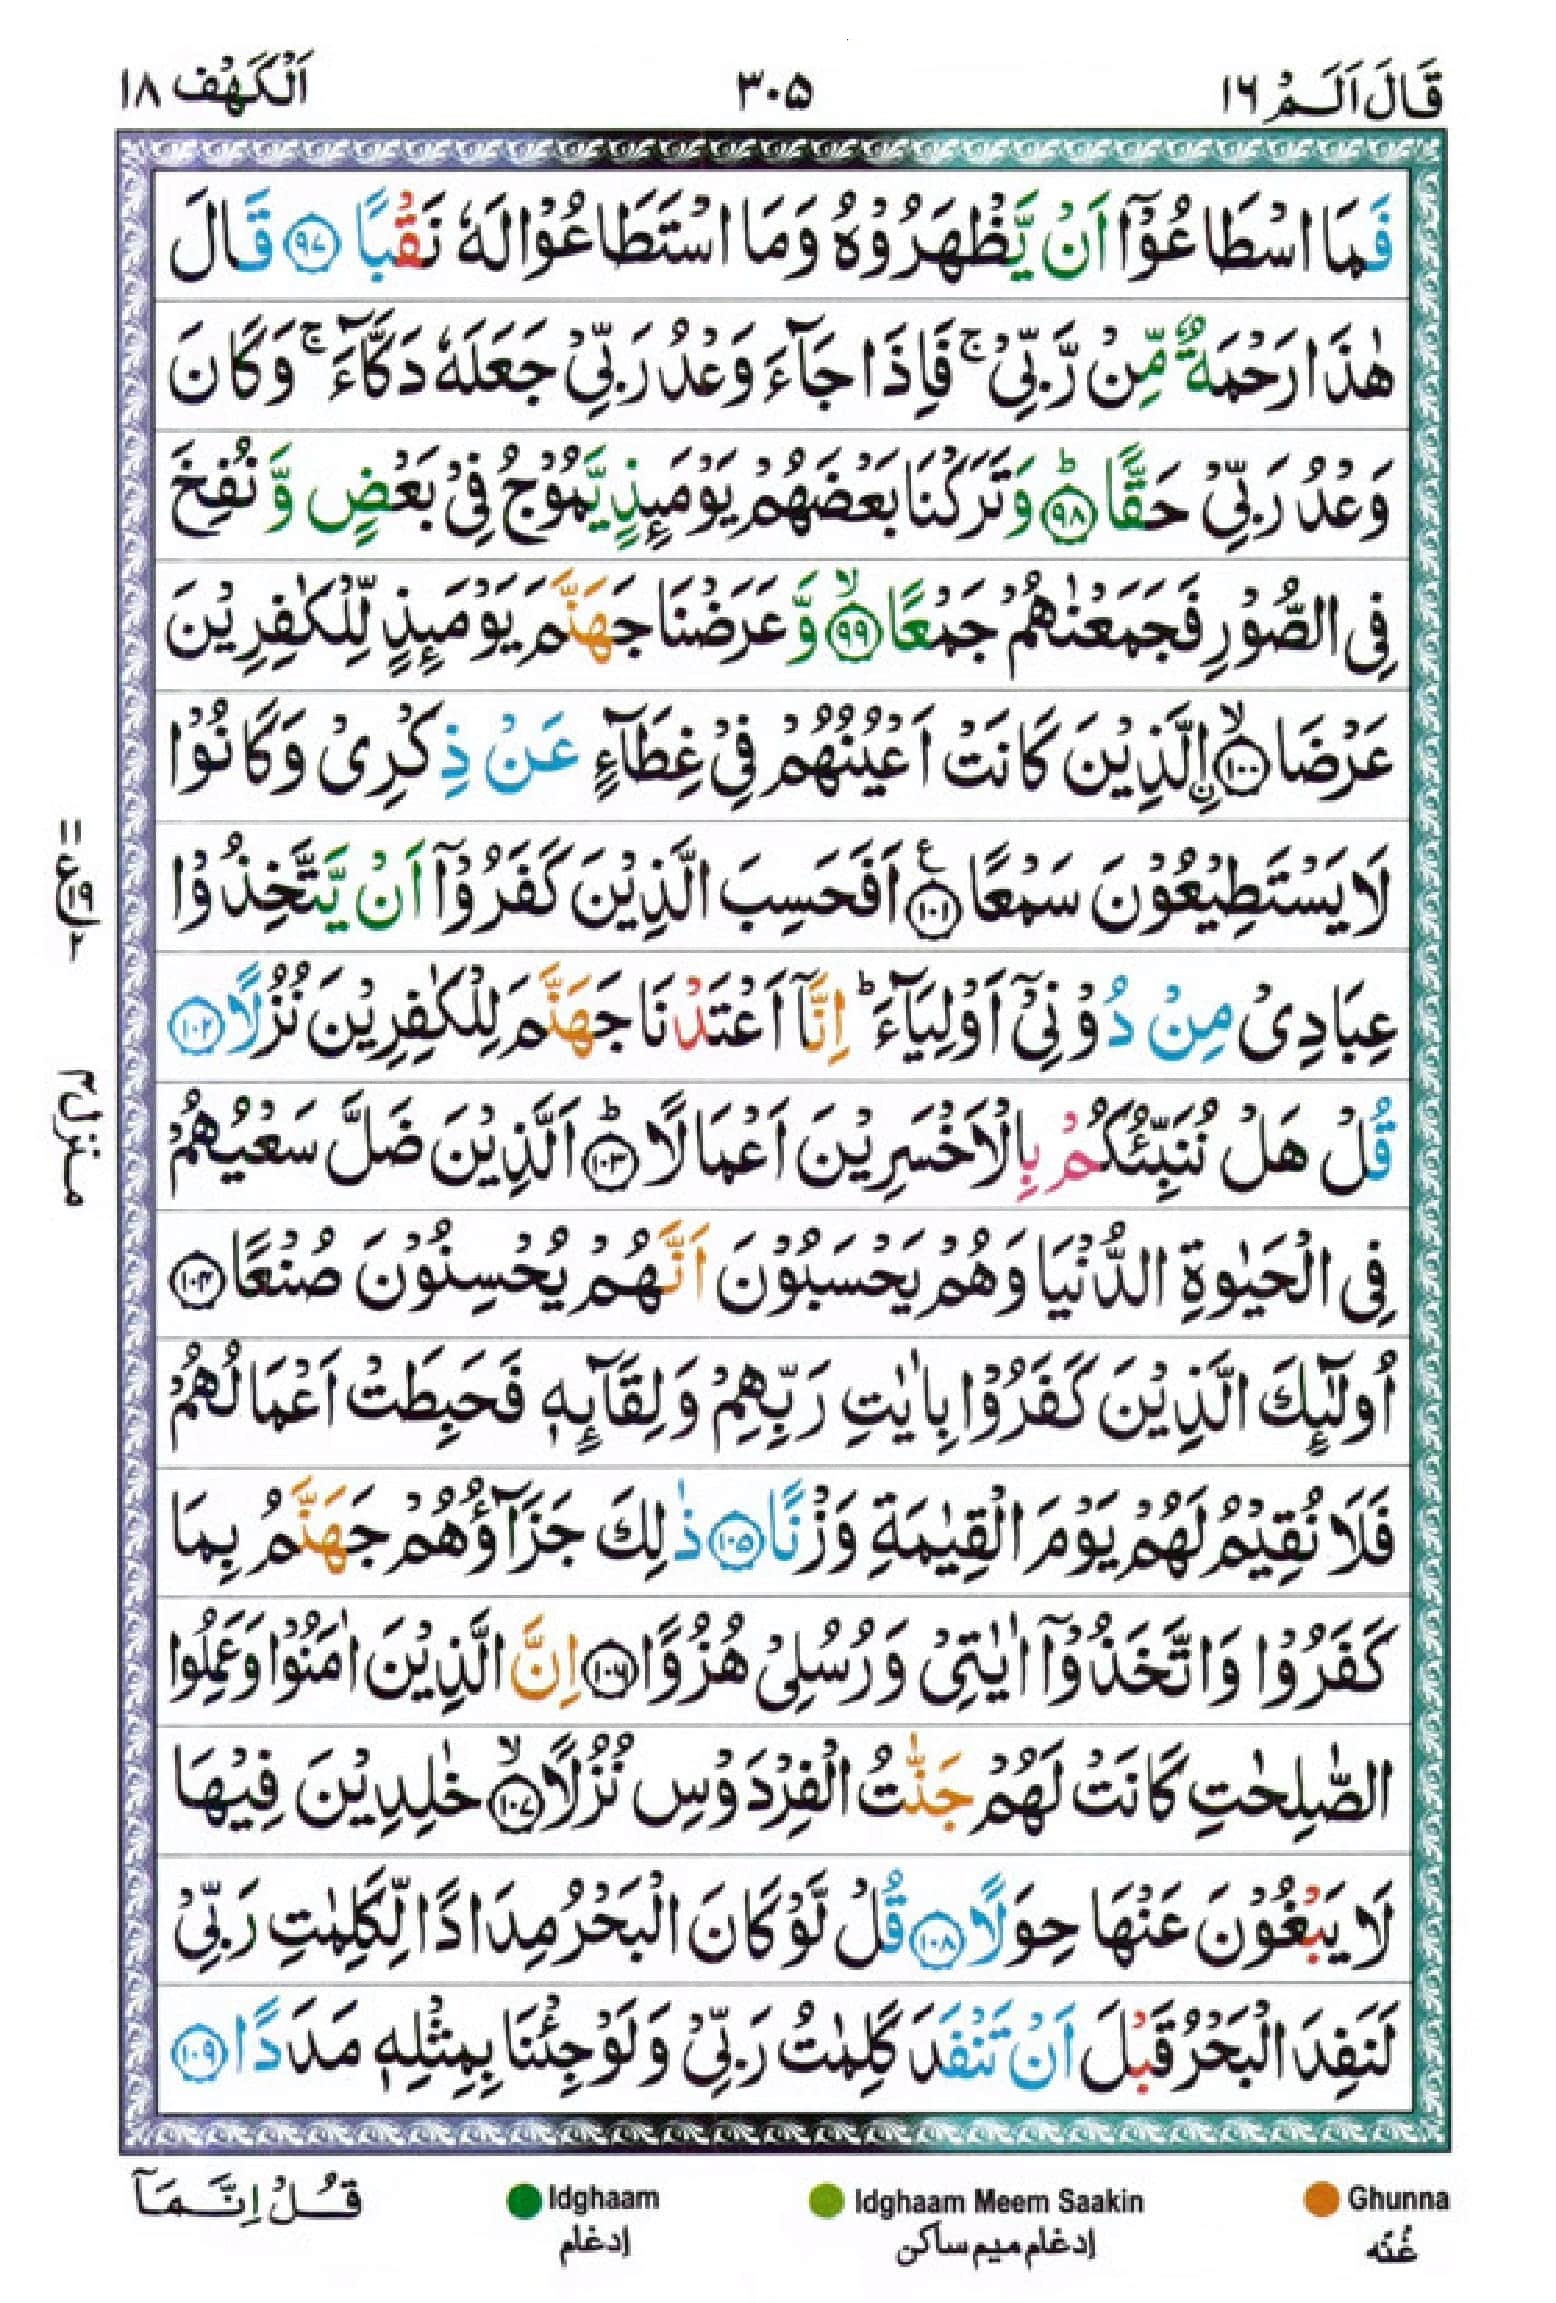 قَالَ اَلَمْ ١٦
٣٠٥
اَلْكَهْف ١٨
فَمَا اسْطَاعُوْۤا اَنْ يَّظْهَرُوْهُ وَمَا اسْتَطَاعُوْا لَهٗ نَقْبًا ٩٧ قَالَ
هٰذَا رَحْمَةٌ مِّنْ رَّبِّيْ ۚ فَاِذَا جَآءَ وَعْدُ رَبِّيْ جَعَلَهٗ دَكَّآءَ ۚ وَكَانَ
وَعْدُ رَبِّيْ حَقًّا ؕ ٩٨ وَتَرَكْنَا بَعْضَهُمْ يَوْمَىِٕذٍ يَّمُوْجُ فِيْ بَعْضٍ وَّ نُفِخَ
فِى الصُّوْرِ فَجَمَعْنٰهُمْ جَمْعًا ۙ ٩٩ وَّ عَرَضْنَا جَهَنَّمَ يَوْمَىِٕذٍ لِّلْكٰفِرِيْنَ
عَرْضَا ۙ ١٠٠ ۨالَّذِيْنَ كَانَتْ اَعْيُنُهُمْ فِيْ غِطَآءٍ عَنْ ذِكْرِىْ وَكَانُوْا
لَا يَسْتَطِيْعُوْنَ سَمْعًا ع ١٠١ اَفَحَسِبَ الَّذِيْنَ كَفَرُوْۤا اَنْ يَّتَّخِذُوْا
عِبَادِىْ مِنْ دُوْنِيْۤ اَوْلِيَآءَ ؕ اِنَّاۤ اَعْتَدْنَا جَهَنَّمَ لِلْكٰفِرِيْنَ نُزُلًا ١٠٢
قُلْ هَلْ نُنَبِّئُكُمْ بِالْاَخْسَرِيْنَ اَعْمَالًا ؕ ١٠٣ اَلَّذِيْنَ ضَلَّ سَعْيُهُمْ
فِى الْحَيٰوةِ الدُّنْيَا وَهُمْ يَحْسَبُوْنَ اَنَّهُمْ يُحْسِنُوْنَ صُنْعًا ١٠٤
اُولٰٓىِٕكَ الَّذِيْنَ كَفَرُوْا بِاٰيٰتِ رَبِّهِمْ وَلِقَآىِٕهٖ فَحَبِطَتْ اَعْمَالُهُمْ
فَلَا نُقِيْمُ لَهُمْ يَوْمَ الْقِيٰمَةِ وَزْنًا ١٠٥ ذٰلِكَ جَزَآؤُهُمْ جَهَنَّمُ بِمَا
كَفَرُوْا وَاتَّخَذُوْۤا اٰيٰتِىْ وَرُسُلِىْ هُزُوًا ١٠٦ اِنَّ الَّذِيْنَ اٰمَنُوْا وَعَمِلُوا
الصّٰلِحٰتِ كَانَتْ لَهُمْ جَنّٰتُ الْفِرْدَوْسِ نُزُلًا ۙ ١٠٧ خٰلِدِيْنَ فِيْهَا
لَا يَبْغُوْنَ عَنْهَا حِوَلًا ١٠٨ قُلْ لَّوْ كَانَ الْبَحْرُ مِدَادًا لِّكَلِمٰتِ رَبِّيْ
لَنَفِدَ الْبَحْرُ قَبْلَ اَنْ تَنْفَدَ كَلِمٰتُ رَبِّيْ وَلَوْ جِئْنَا بِمِثْلِهٖ مَدَدًا ١٠٩
١١
ع ١٩
٢
منزل ٤
Ghunna
غُنّه
Idghaam Meem Saakin
إدغام ميم ساكن
Idghaam
إدغام
قُلْ اِنَّمَاۤ